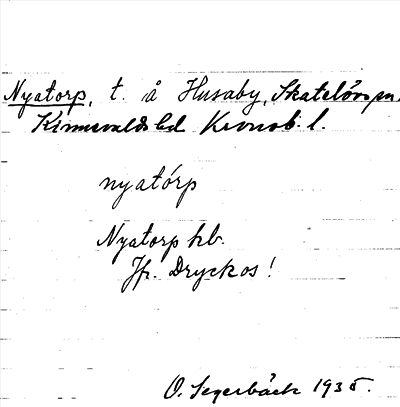 Nyatorp, t. å Husaby, Skatelövs sn.
Kinnevalds hd Kronob. l.
nyatórp
Nyatorp hb.
Jfr. Dryckos!
O. Segerbäck 1935.